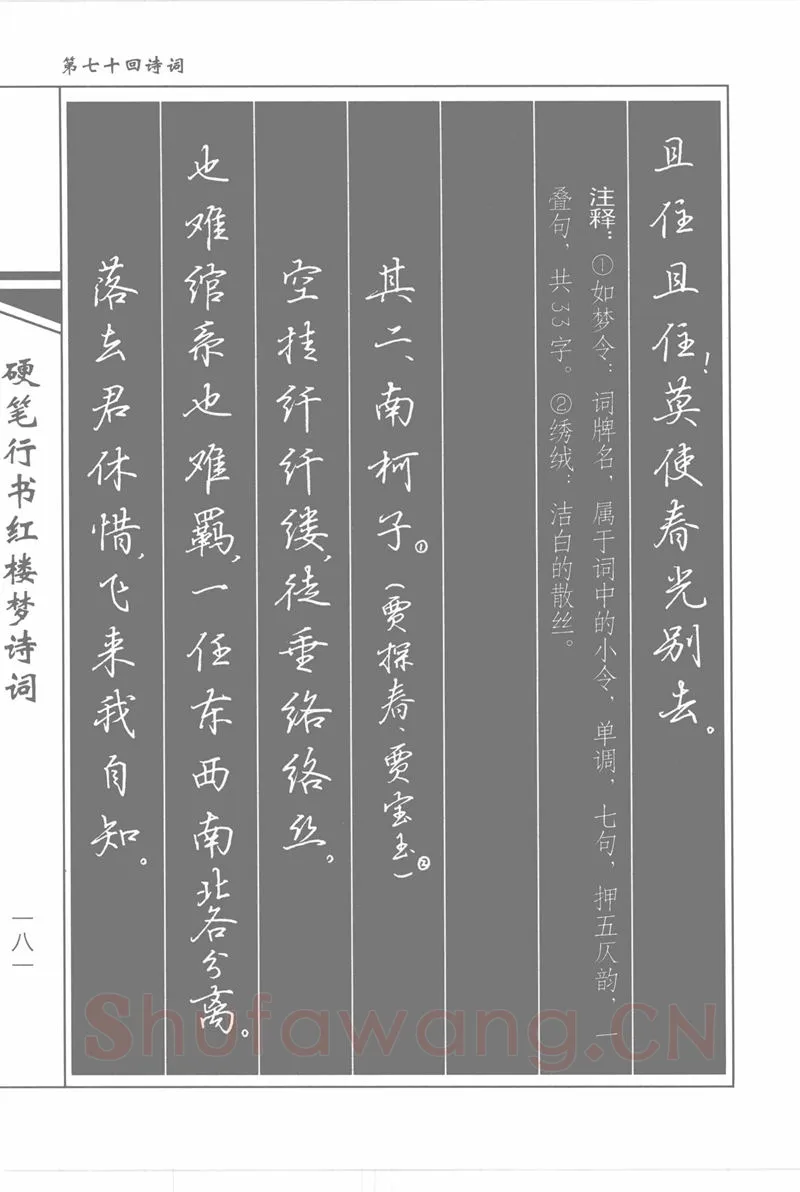 第七十回诗词
且住且住！莫使春光别去。
注释：①如梦令：词牌名，属于词中的小令，单调，七句，押五仄韵，一
叠句，共33字。②绣绒：洁白的散丝。
其二、南柯子①（贾探春、贾宝玉）②
空挂纤纤缕，徒垂络络丝。
也难绾系也难羁，一任东西南北各分离。
落去君休惜，飞来我自知。
硬笔行书红楼梦诗词
一八一
Shufawang.CN